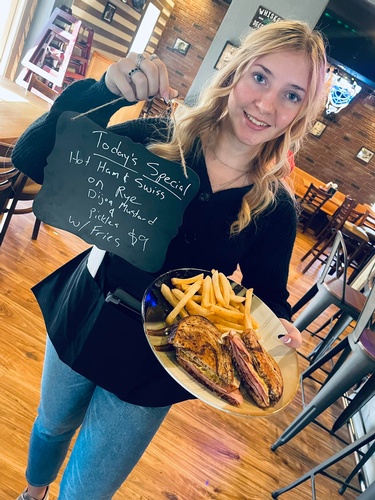 WHISKEY
Today's Special
Hot Ham & Swiss
on Rye
Dijon Mustard
&
Pickles $9
w/ Fries